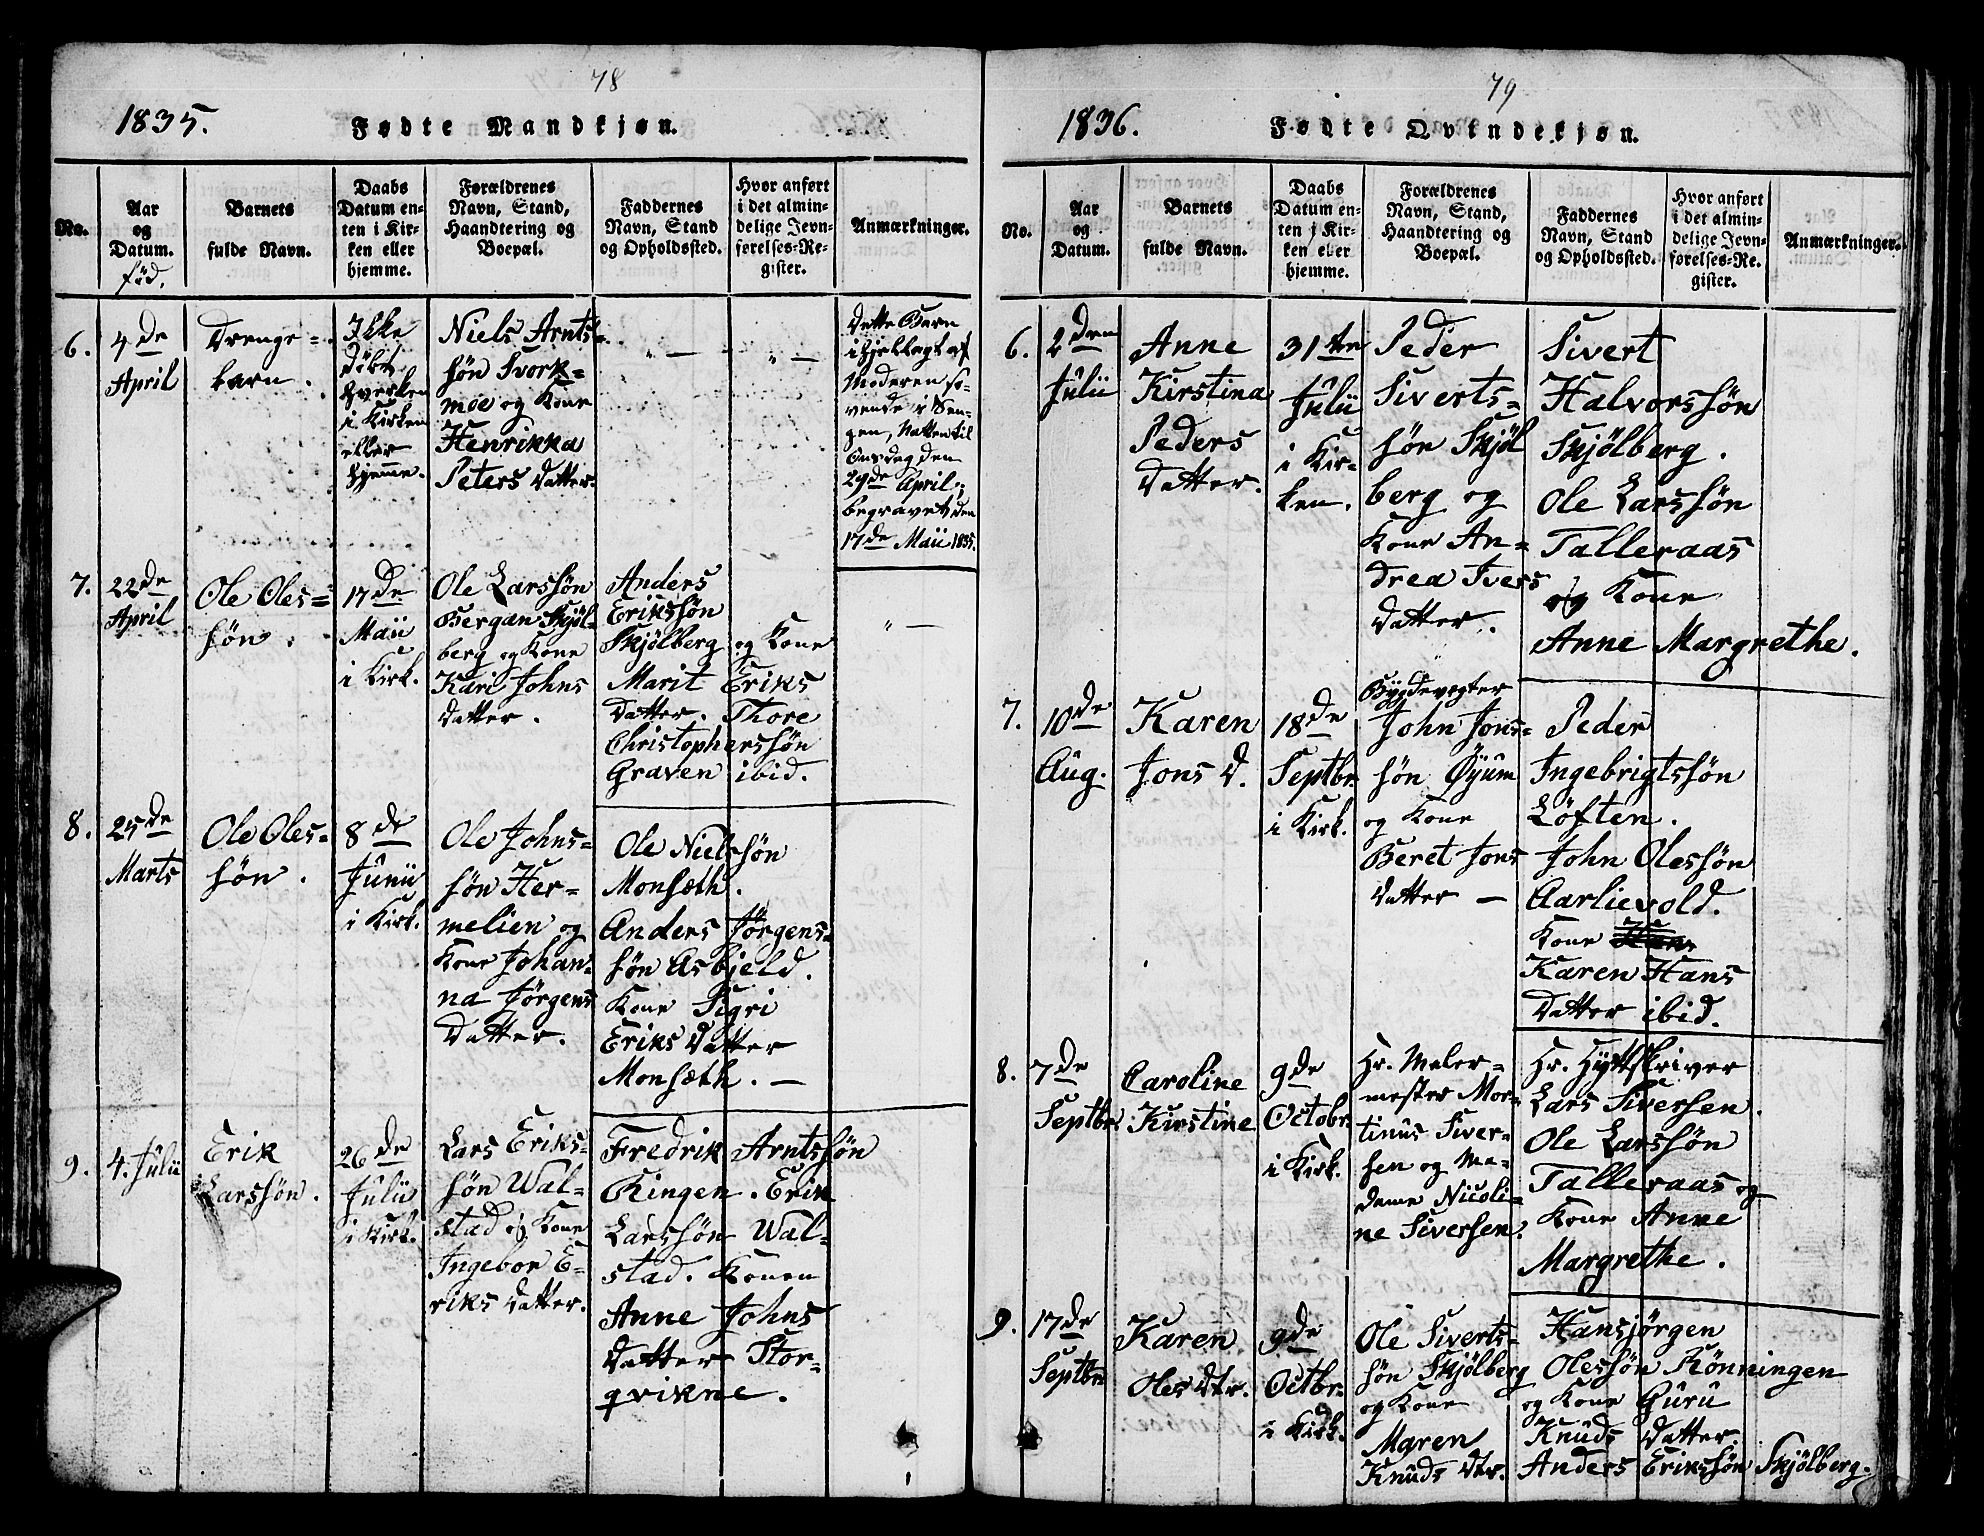 78
1835.
Fødte Mandkjøn.
No.
Aar
og
Datum.
föd.
Barnets
fulde Navn.
Daabs
Datum en-
ten i Kir-
ken eller
hjemme.
Forældrenes
Navn, Stand,
Haandtering og
Boepæl.
Faddernes
Navn, Stand
og Opholdssted.
Hvor anført
i det almin-
delige Jevn-
førelses-Re-
gister.
Anmærkninger.
6.
4de
April
Drenge-
barn.
Ikke
Döbt
hverken
i Kirken
eller
hjemme.
Niels Arnts-
søn Svork-
moe og Kone
Henrikka
Peters Datter.
" —
" —
Dette Barn
ihjellagt af
Moderen so-
vende i Sen-
gen, Natten til
Onsdag den
29de April,
begravet den
17de Maii 1835.
7.
22de
April
Ole Oles-
søn.
17de
Maii
i Kirk.
Ole Larssøn
Bergan Skjøl-
berg og Kone
Kari Johns
Datter.
Anders
Erikssøn
Skjølberg og Kone
Marit Eriks
Datter. Thore
Christopherssøn
Graven ibid.
" —
8.
25de
Marts
Ole Oles-
søn.
8de
Junii
i Kirk.
Ole Johns-
søn Her-
melien og
Kone Johan-
na Jørgens
Datter.
Ole Nielssøn
Monsæth.
Anders Jørgens-
søn Asbjeld.
Kone Sigri
Eriks Datter
Monsæth. —
9.
4. Julii
Erik
Larssøn.
26de
Julii
i Kirk.
Lars Eriks-
søn Wal-
stad og Kone
Ingebor E-
riks Datter.
Fredrik Arntssøn
Ringen. Erik
Larssøn Wal-
stad. Konen
Anne Johns
Datter Stor-
qvikne.
79
1836.
Fødte Qvindekjøn.
No.
Aar
og
Datum.
Barnets
fulde Navn.
Daabs
Datum en-
ten i Kir-
ken eller
hjemme.
Forældrenes
Navn, Stand,
Haandtering og
Boepæl.
Faddernes
Navn, Stand
og Opholdssted.
Hvor anført
i det almin-
delige Jevn-
førelses-Re-
gister.
Anmærkninger.
6.
2den
Julii
Anne
Kirstina
Peders
Datter.
31te
Julii
i Kir-
ken.
Peder
Siverts-
søn Skjöl
berg og
Kone An-
drea Ivers
Datter.
Sivert
Halvorssøn
Skjølberg.
Ole Larssøn
Talleraas
og Kone
Anne Margrethe.
7.
10de
Aug.
Karen
Jons D.
18de
Septbr.
i Kirk.
Bygdevægter
John Jons-
søn Øyum
og Kone
Beret Jons
Datter —
Peder
Ingebrigtssøn
Løften.
John Olessøn
Aarlievold.
Kone
Karen Hans
Datter ibid.
8.
7de
Septbr.
Caroline
Kirstine
9de
Octobr.
i Kirk.
Hr. Maler-
mester Mor-
tinus Siver-
sen og Ma-
dame Nicoli-
ne Siversen.
Hr. Hytskriver
Lars Siversen.
Ole Larssøn
Talleraas og
Kone Anne
Margrethe.
9.
17de
Septbr.
Karen
Oles Dtr.
9de
Octbr.
i Kirk.
Ole Siverts-
søn Skjølberg
og Kone
Maren
Knuds Dtr.
Hansjørgen
Olessøn Rønningen
og Kone Guru
Knuds Datter
Anders Erikssøn Skjölberg.